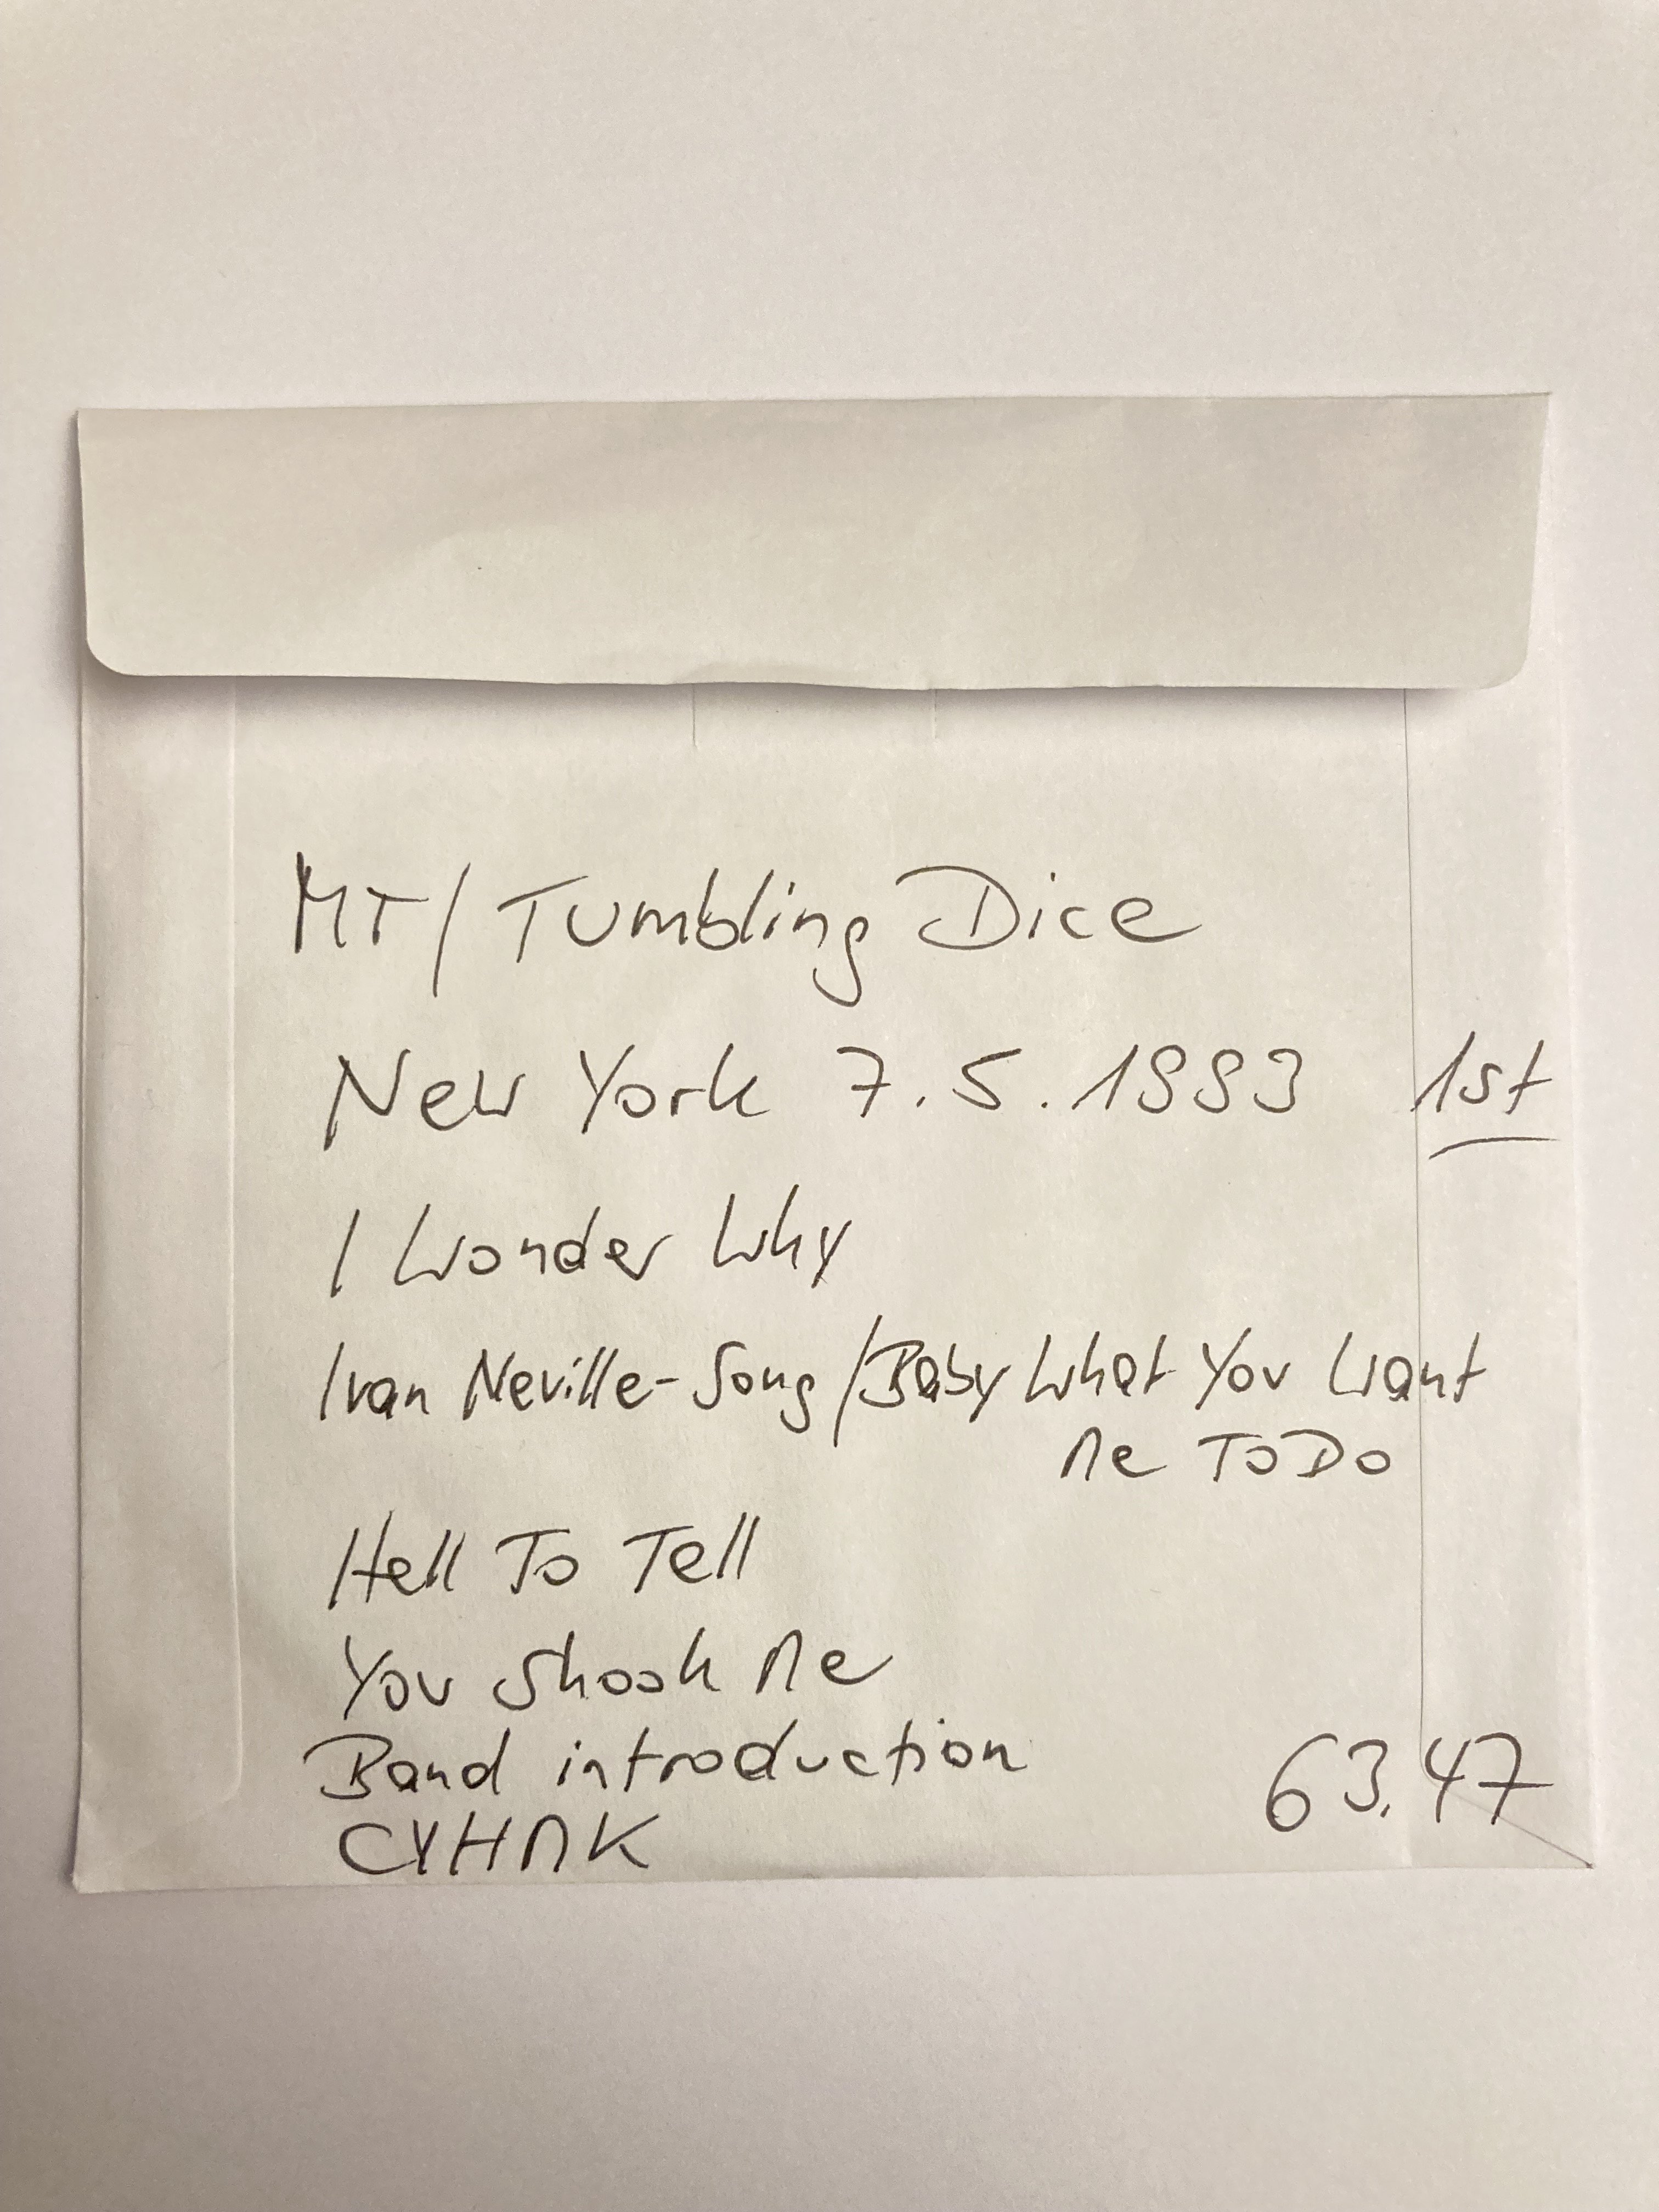 MT/Tumbling Dice
New York 7.5.1993 1st
I Wonder Why
Ivan Neville-Song/Baby What You Want
Me To Do
Hell To Tell
You Shook Me
Band introduction
CYHMK 63.47